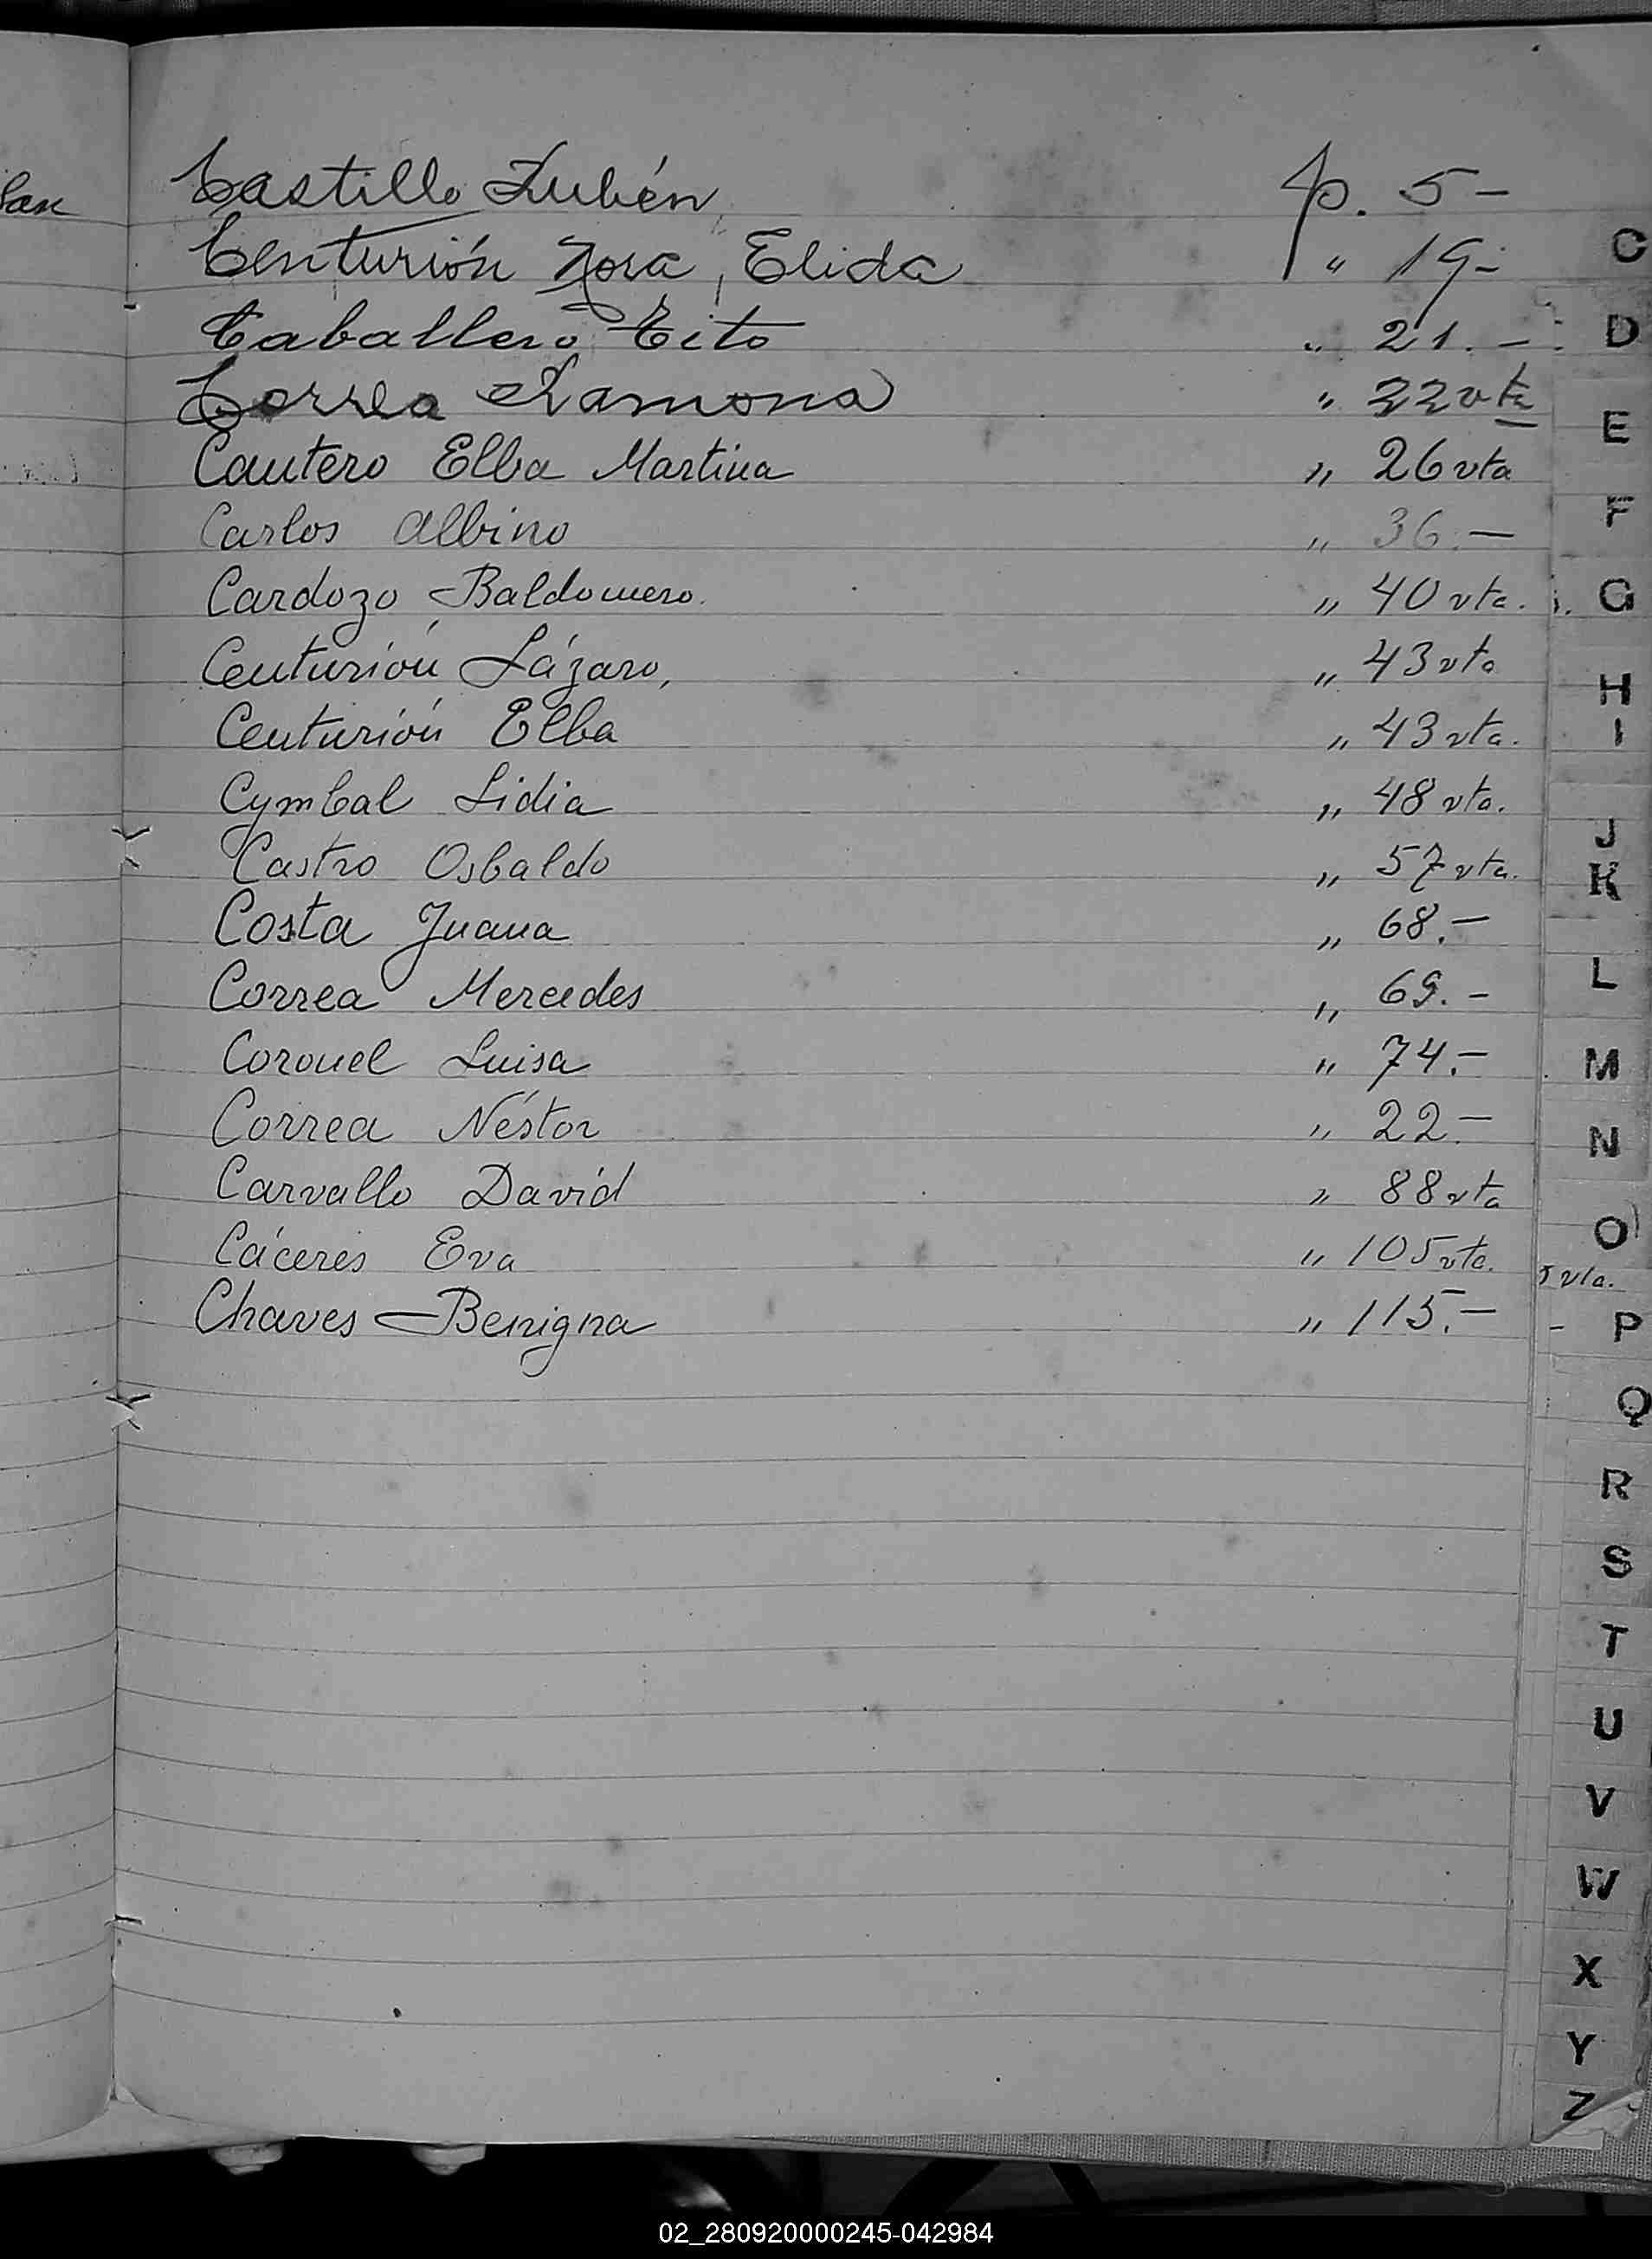 Castillo Rubén p. 5-
Centurión Rosa, Elida " 19-
Caballero Tito " 21.-
Correa Ramona " 22 vta
Cautero Elba Martina " 26 vta
Carlos Albino " 36.-
Cardozo Baldomero. " 40 vta.
Centurión Lázaro, " 43 vta
Centurión Elba " 43 vta.
Cymbal Lidia " 48 vta.
Castro Osbaldo " 57 vta.
Costa Juana " 68.-
Correa Mercedes " 69.-
Coronel Luisa " 74.-
Correa Néstor " 22.-
Carvallo David " 88 vta
Cáceres Eva " 105 vta.
Chaves Benigna " 115.-
C
D
E
F
G
H
I
J
K
L
M
N
O
5 vta.
P
Q
R
S
T
U
V
W
X
Y
Z
02_280920000245-042984